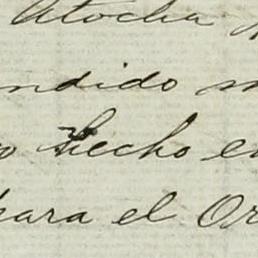 Atocha
ndido
hecho e
para el Or